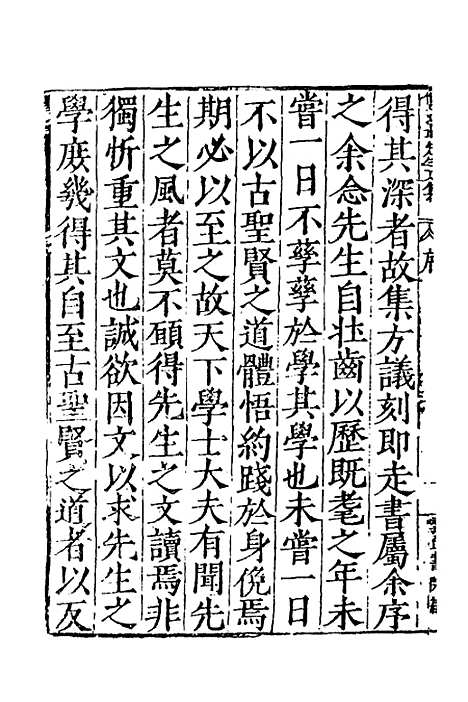 得其深者故集方議刻即走書屬余序
之余念先生自壯齒以歷既耄之年未
嘗一日不孳孳於學其學也未嘗一日
不以古聖賢之道體悟約踐於身俛焉
期必以至之故天下學士大夫有聞先
生之風者莫不願得先生之文讀焉非
獨忻重其文也誠欲因文以求先生之
學庻幾得其自至古聖賢之道者以反